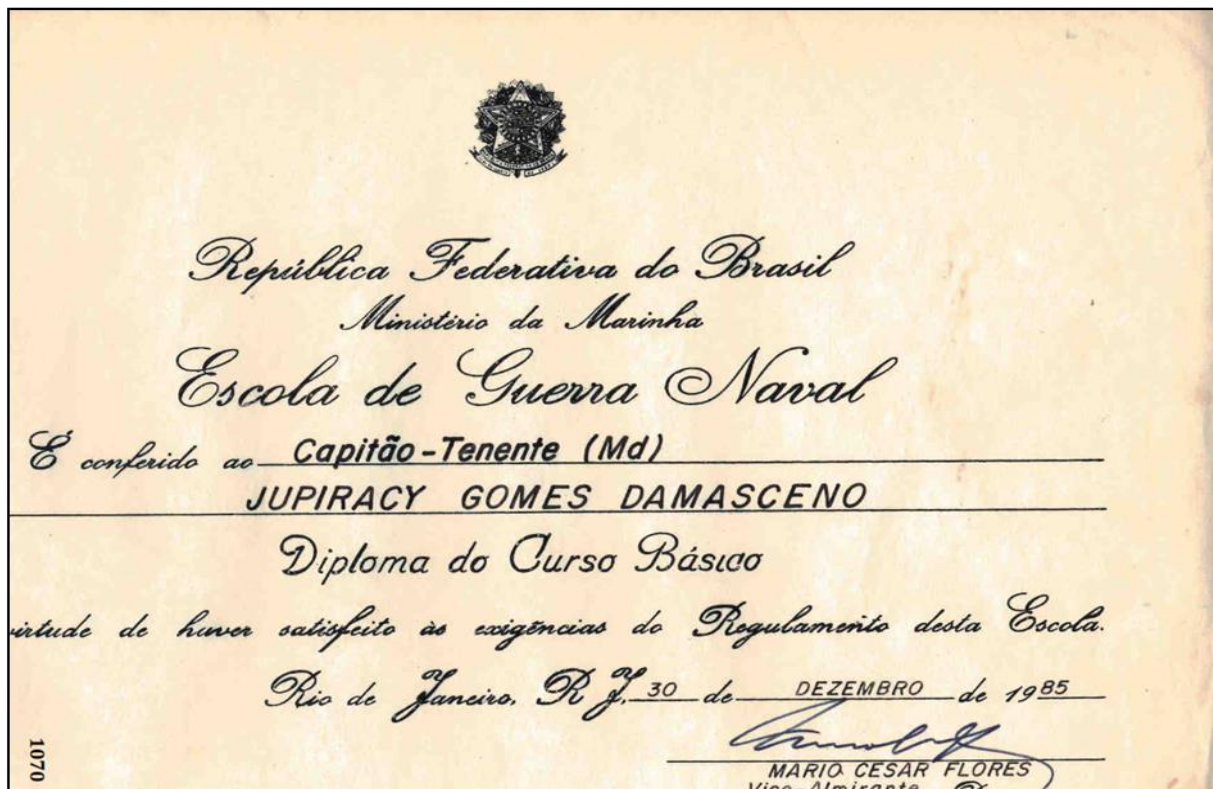 República Federativa do Brasil
Ministério da Marinha
Escola de Guerra Naval
É conferido ao Capitão-Tenente (Md)
JUPIRACY GOMES DAMASCENO
Diploma do Curso Básico
virtude de haver satisfeito às exigências do Regulamento desta Escola.
Rio de Janeiro, RJ, 30 de DEZEMBRO de 1985
MARIO CESAR FLORES
Vice-Almirante
1070